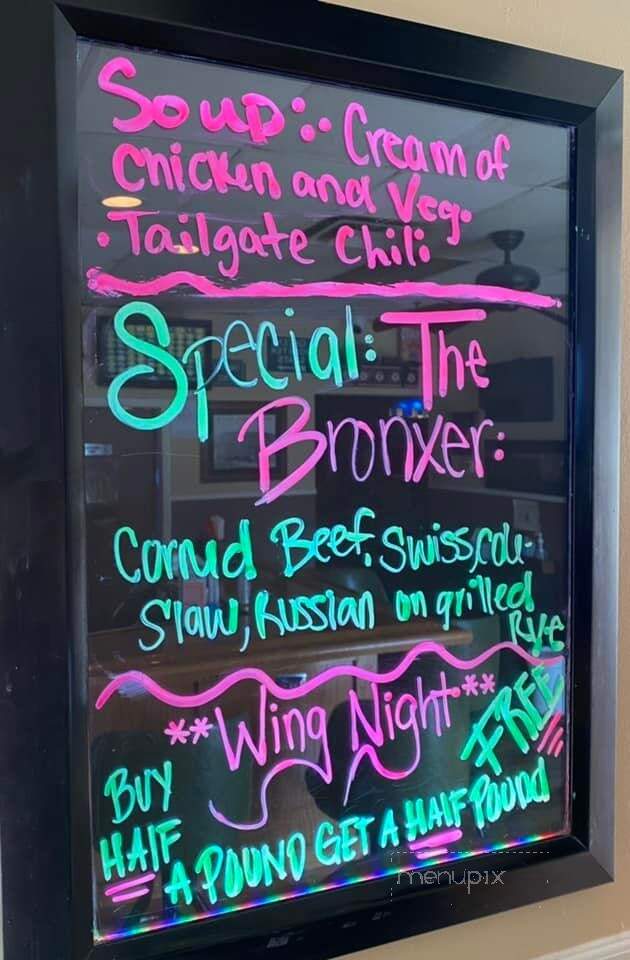 Soup: Cream of
Chicken and Veg.
• Tailgate Chili
Special: The
Bronxer:
Corned Beef, Swiss, cole-
slaw, Russian on grilled
Rye
**Wing Night**
BUY
HALF
A POUND GET A HALF POUND
FREE
menupix